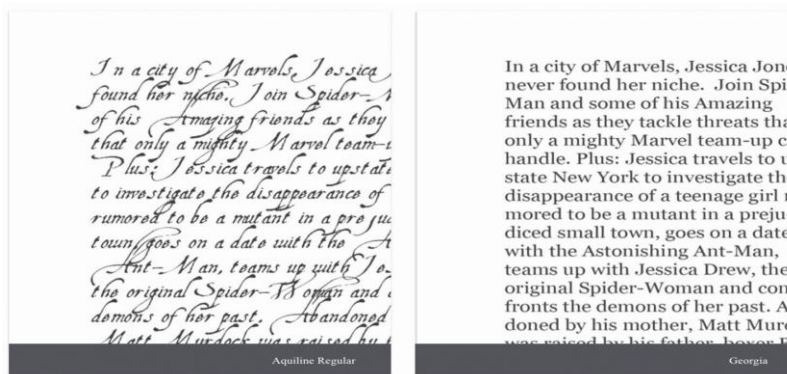 In a city of Marvels, Jessica
found her niche. Join Spider-
of his Amazing friends as they
that only a mighty Marvel team-
Plus: Jessica travels to upstate
to investigate the disappearance of
rumored to be a mutant in a preju
town, goes on a date with the
Ant-Man, teams up with Je
the original Spider-Woman and
demons of her past. Abandoned
Matt Murdock was raised by
Aquiline Regular
In a city of Marvels, Jessica Jon
never found her niche. Join Spi
Man and some of his Amazing
friends as they tackle threats tha
only a mighty Marvel team-up c
handle. Plus: Jessica travels to u
state New York to investigate th
disappearance of a teenage girl r
mored to be a mutant in a preju
diced small town, goes on a date
with the Astonishing Ant-Man,
teams up with Jessica Drew, the
original Spider-Woman and con
fronts the demons of her past. A
doned by his mother, Matt Murd
was raised by his father, boxer
Georgia